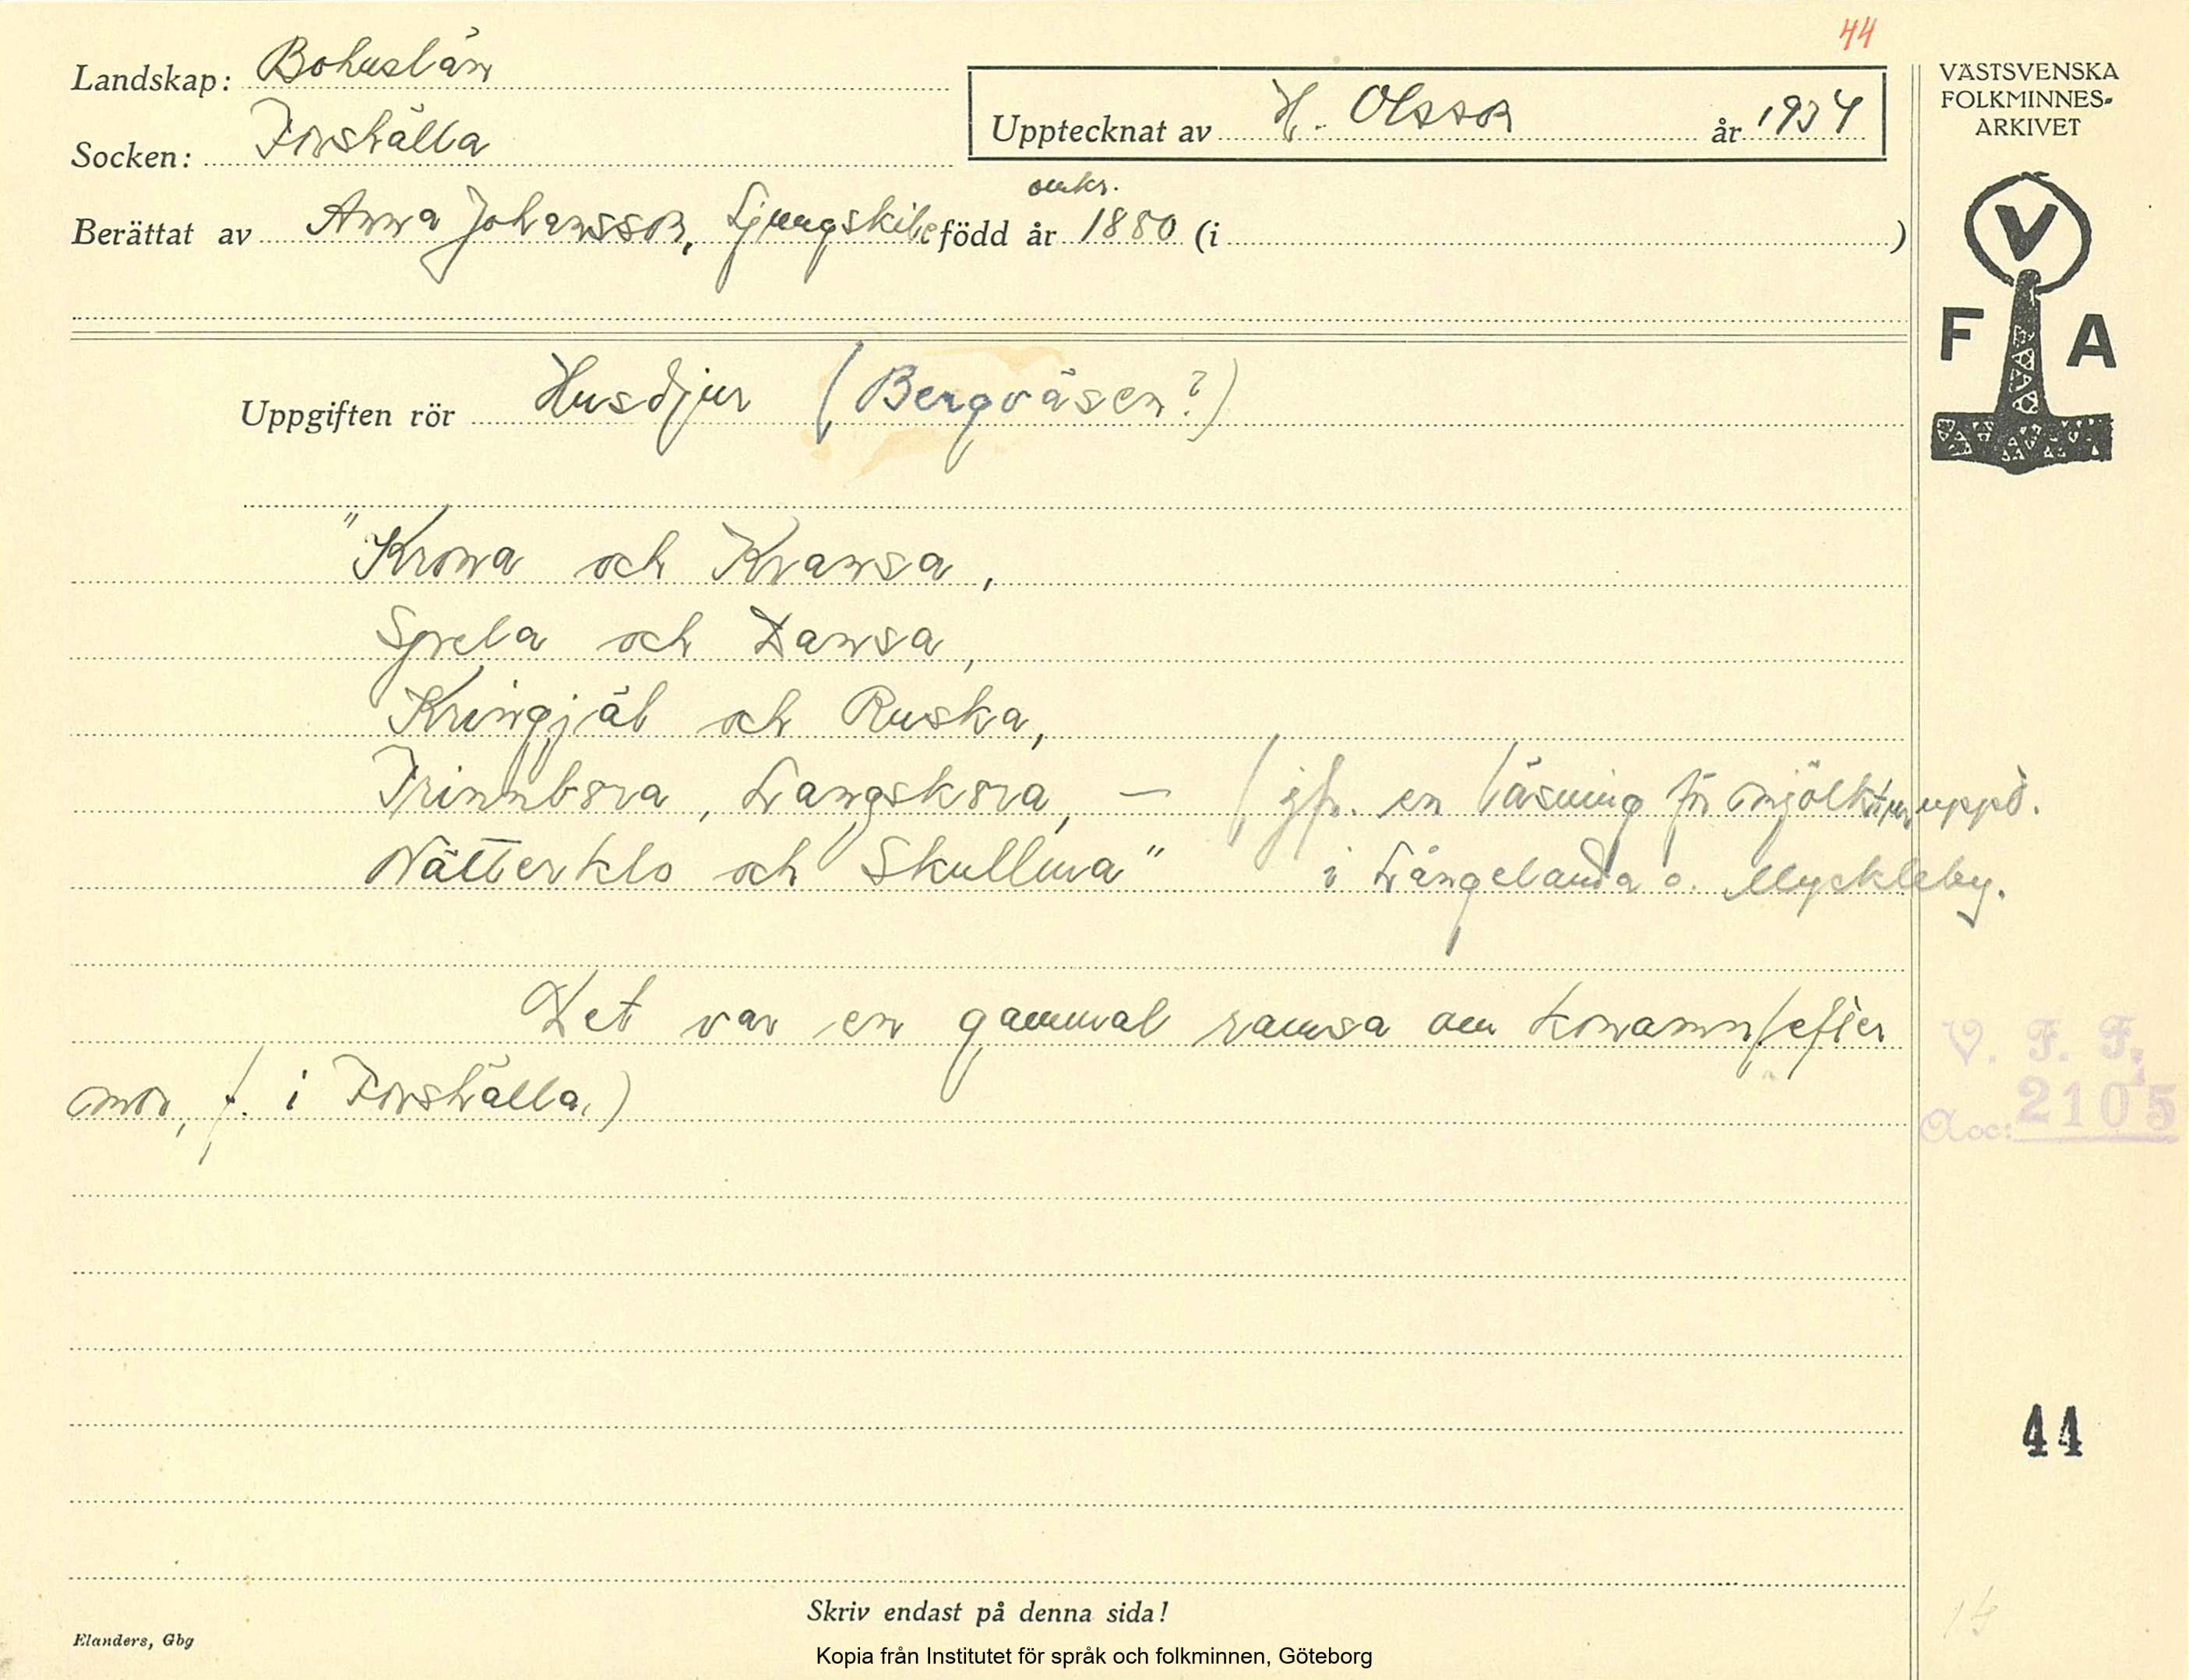 44
Landskap: Bohuslän
Socken: Forshälla
Upptecknat av H. Olsson år 1934
VÄSTSVENSKA
FOLKMINNES-
ARKIVET
omkr.
Berättat av Anna Johansson, Ljungskile född år 1880 (i )
V
F A
Uppgiften rör Husdjur (Bergväsen?)
"Krona och Kransa,
Spela och Dansa,
Kringjäl och Ruska,
Trinnbora, Langskora, — (jfr. en läsning för uppt.
Nätterklo och Skullma" i Långelanda o. Myckleby.
Det var en gammal ramsa om konamn (efter
mor, f. i Forshälla.)
V. F. F.
Acc: 2105
44
Skriv endast på denna sida!
Elanders, Gbg
Kopia från Institutet för språk och folkminnen, Göteborg